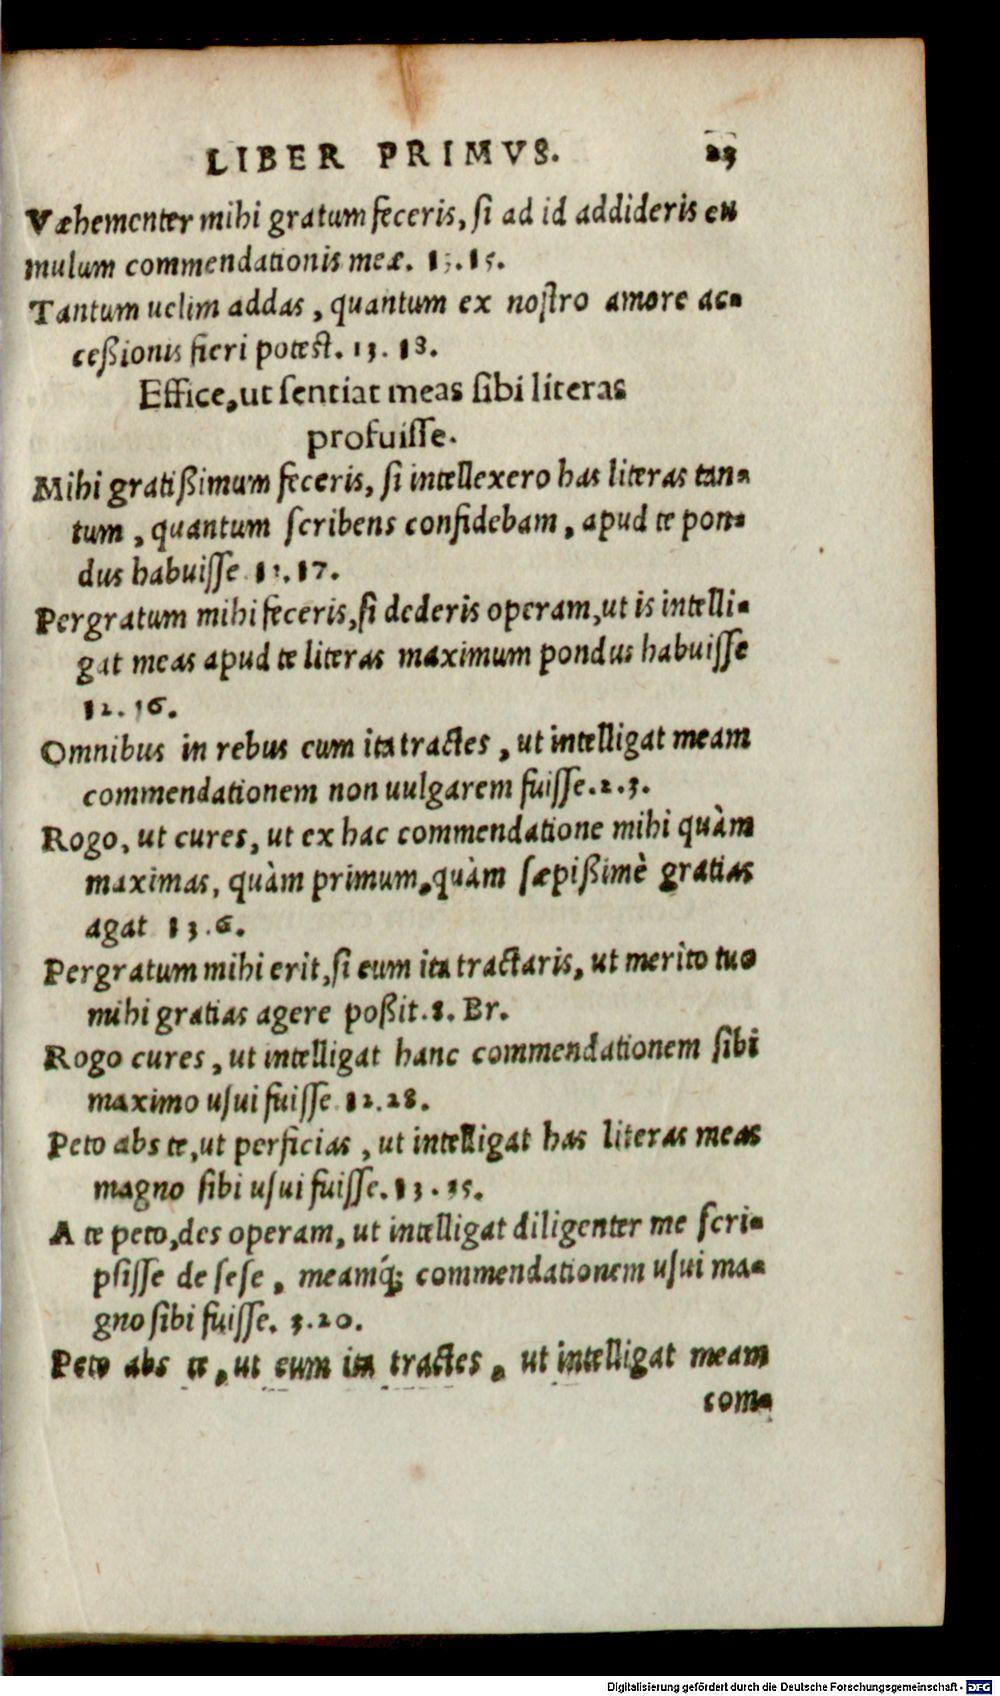 LIBER PRIMVS. 23
Væhementer mihi gratum feceris, si ad id addideris cu
mulum commendationis meæ. 13.15.
Tantum uelim addas, quantum ex nostro amore ac-
ceßionis fieri potest. 13. 18.
Effice, ut sentiat meas sibi literas
profuisse.
Mihi gratißimum feceris, si intellexero has literas tan-
tum, quantum scribens confidebam, apud te pon-
dus habuisse 12.17.
Pergratum mihi feceris, si dederis operam, ut is intelli-
gat meas apud te literas maximum pondus habuisse
12.16.
Omnibus in rebus eum ita tractes, ut intelligat meam
commendationem non uulgarem fuisse. 2.3.
Rogo, ut cures, ut ex hac commendatione mihi quàm
maximas, quàm primum, quàm sæpißimè gratias
agat 13.6.
Pergratum mihi erit, si eum ita tractaris, ut merito tuo
mihi gratias agere poßit. 8. Br.
Rogo cures, ut intelligat hanc commendationem sibi
maximo usui fuisse 12.28.
Peto abs te, ut perficias, ut intelligat has literas meas
magno sibi usui fuisse. 13.35.
A te peto, des operam, ut intelligat diligenter me scri-
psisse de sese, meamq́; commendationem usui ma-
gno sibi fuisse. 3.20.
Peto abs te, ut eum ita tractes, ut intelligat meam
com-
Digitalisierung gefördert durch die Deutsche Forschungsgemeinschaft - DFG